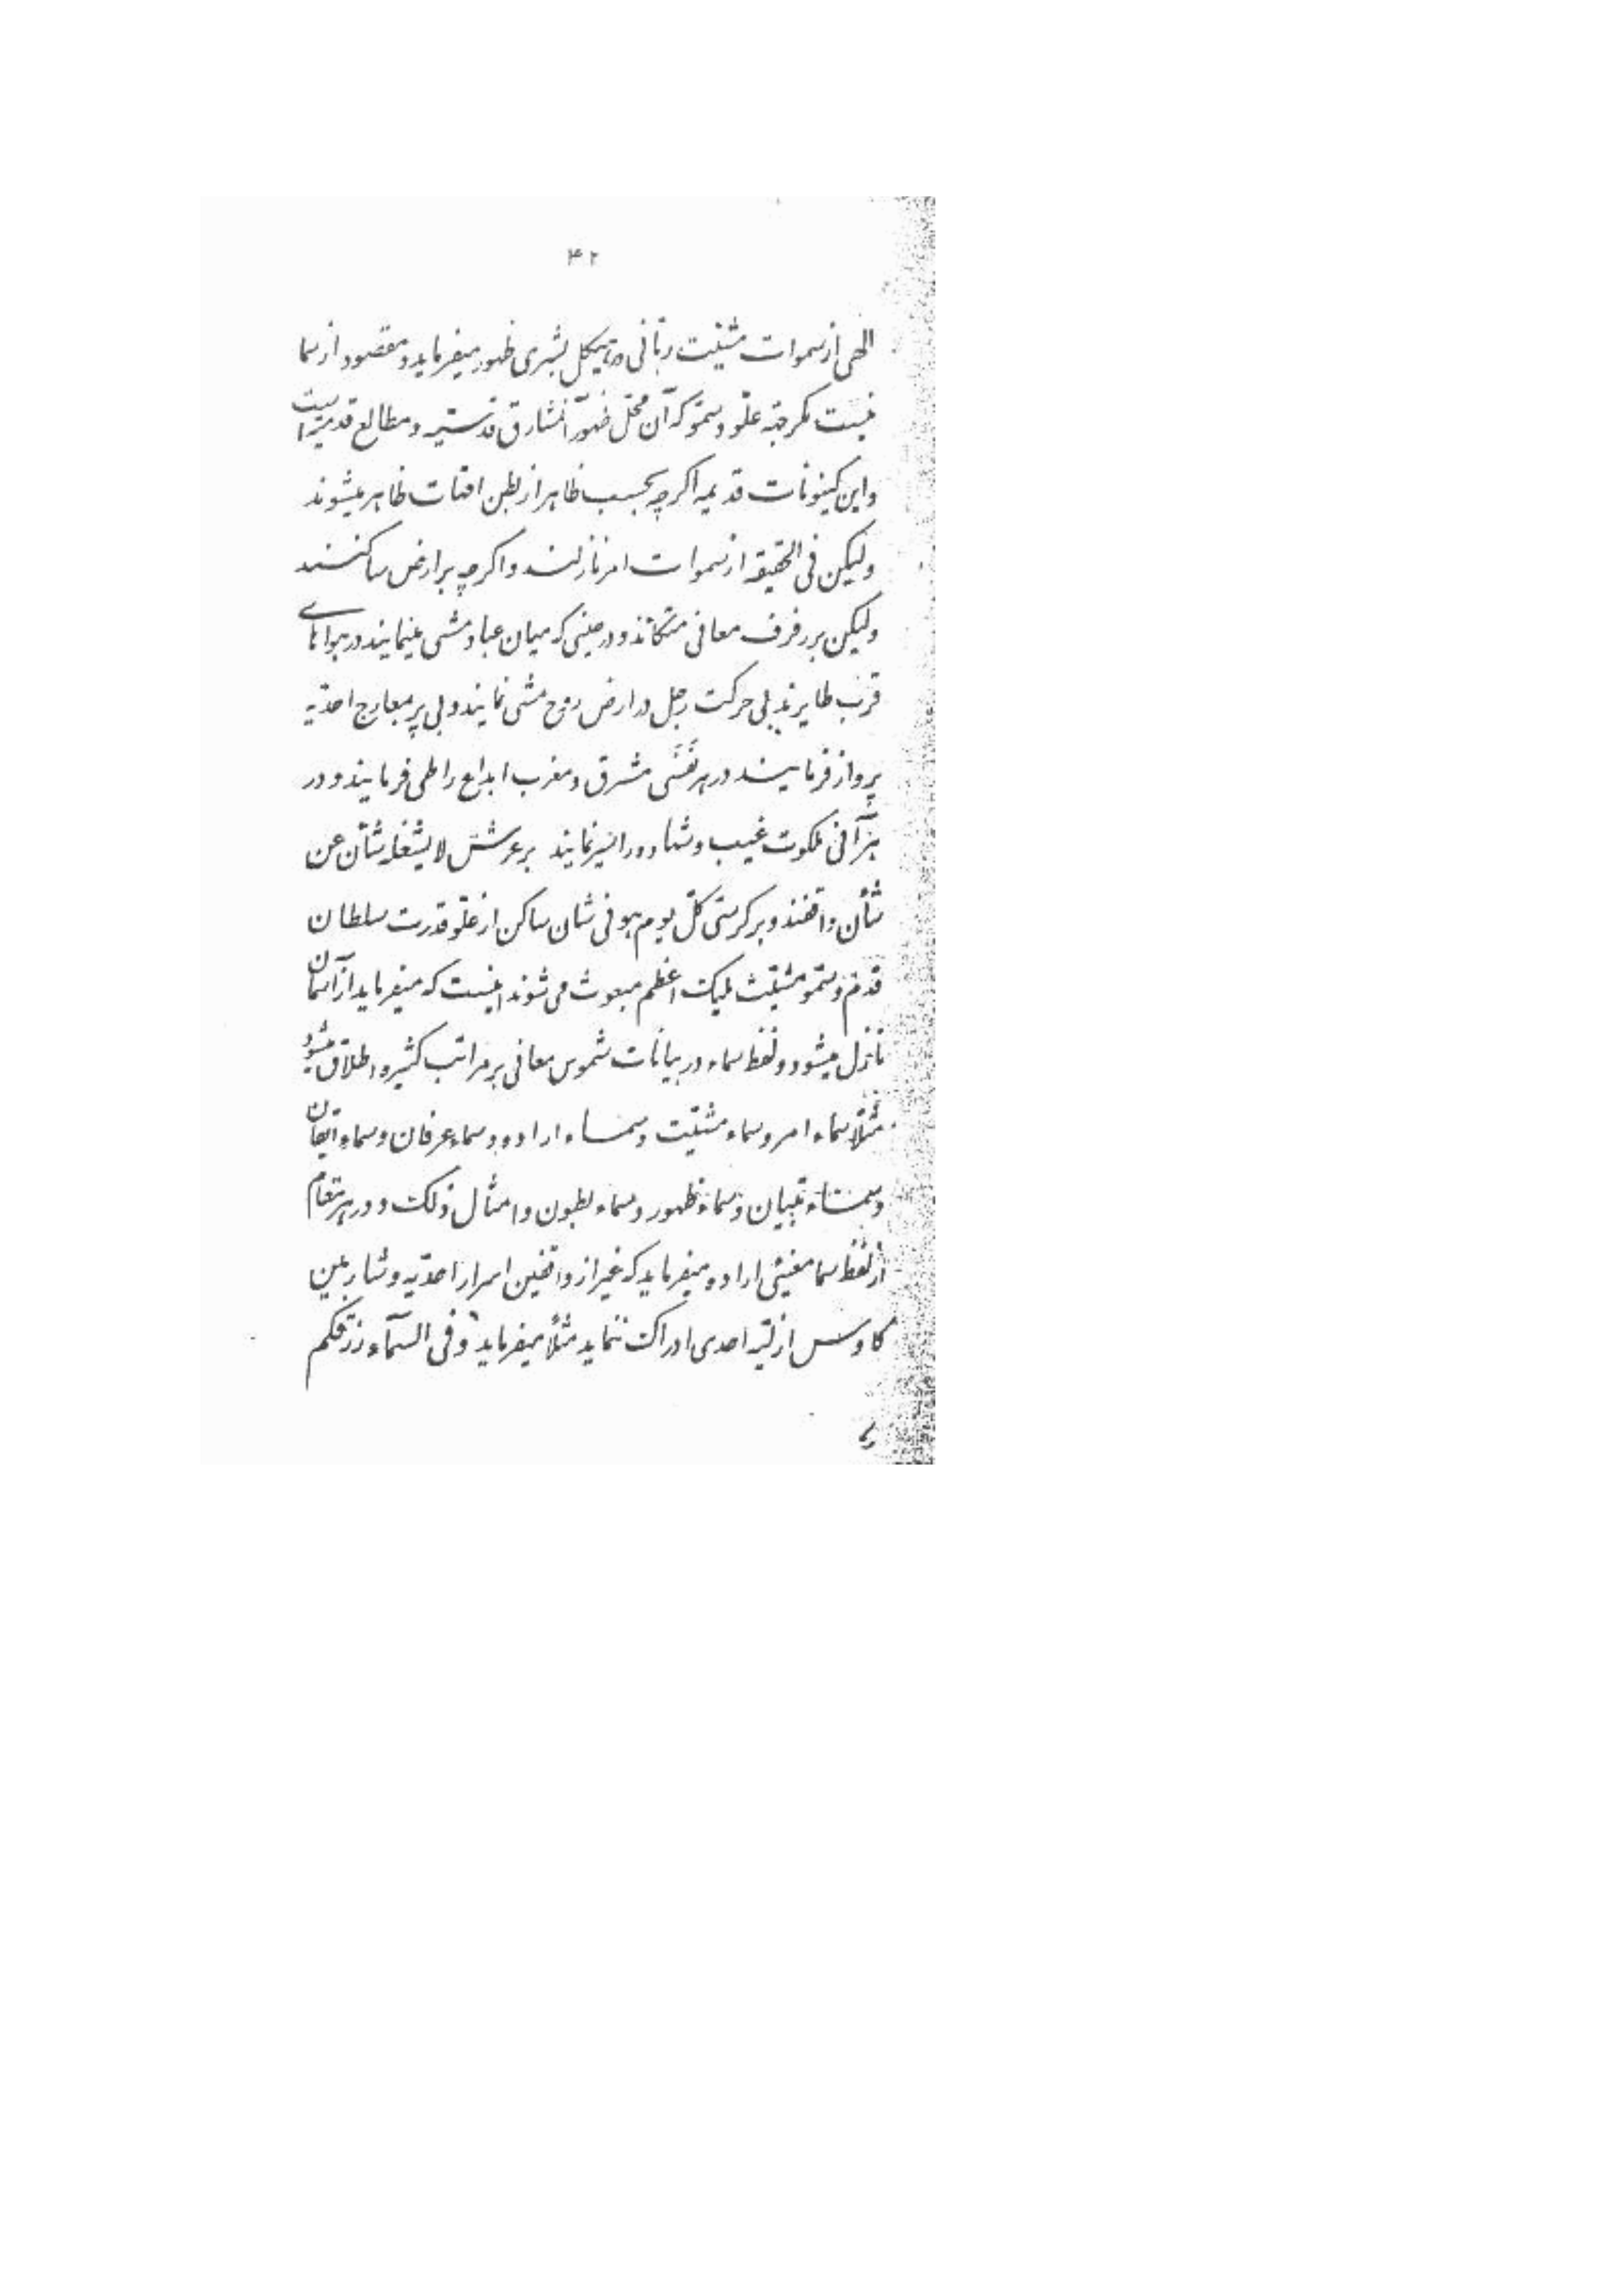 ۴۲
الهی از سموات مشیّت ربّانی در هیکل بشری ظهور میفرماید و مقصود از سما
نیست مگر جهة علوّ و سموّ که آن محلّ ظهور آنمشارق قدسیّه و مطالع قدمیّه است
و این کینونات قدیمه اگرچه بحسب ظاهر از بطن امّهات ظاهر میشوند
ولیکن فی الحقیقه از سموات امر نازلند و اگرچه بر ارض ساکنند
ولیکن بر رفرف معانی متّکأند و در حینی که میان عباد مشی مینمایند در هواهای
قرب طایرند بی حرکت رجل در ارض روح مشی نمایند و بی پر بمعارج احدیّه
پرواز فرمایند در هر نَفَسَی مشرق و مغرب ابداع را طی فرمایند و در
هر آنی ملکوت غیب و شهاده را سیر نمایند بر عرش لا یشغله شأن عن
شأن واقفند و بر کرسیّ کلّ یوم هو فی شان ساکن از علوّ قدرت سلطان
قدم و سموّ مشیّت ملیک اعظم مبعوث می شوند اینست که میفرماید از آسمان
نازل میشود و لفظ سماء در بیانات شموس معانی بر مراتب کثیره اطلاق میشود
مثلاً سماء امر و سماء مشیّت و سماء اراده و سماء عرفان و سماء ایقان
و سماء تبیان و سماء ظهور و سماء بطون و امثال ذلک و در هر مقام
از لفظ سما معنیئی اراده میفرماید که غیر از واقفین اسرار احدیّه و شاربین
کاوس ازلیّه احدی ادراک ننماید مثلاً میفرماید و فی السّمآء رزقکم